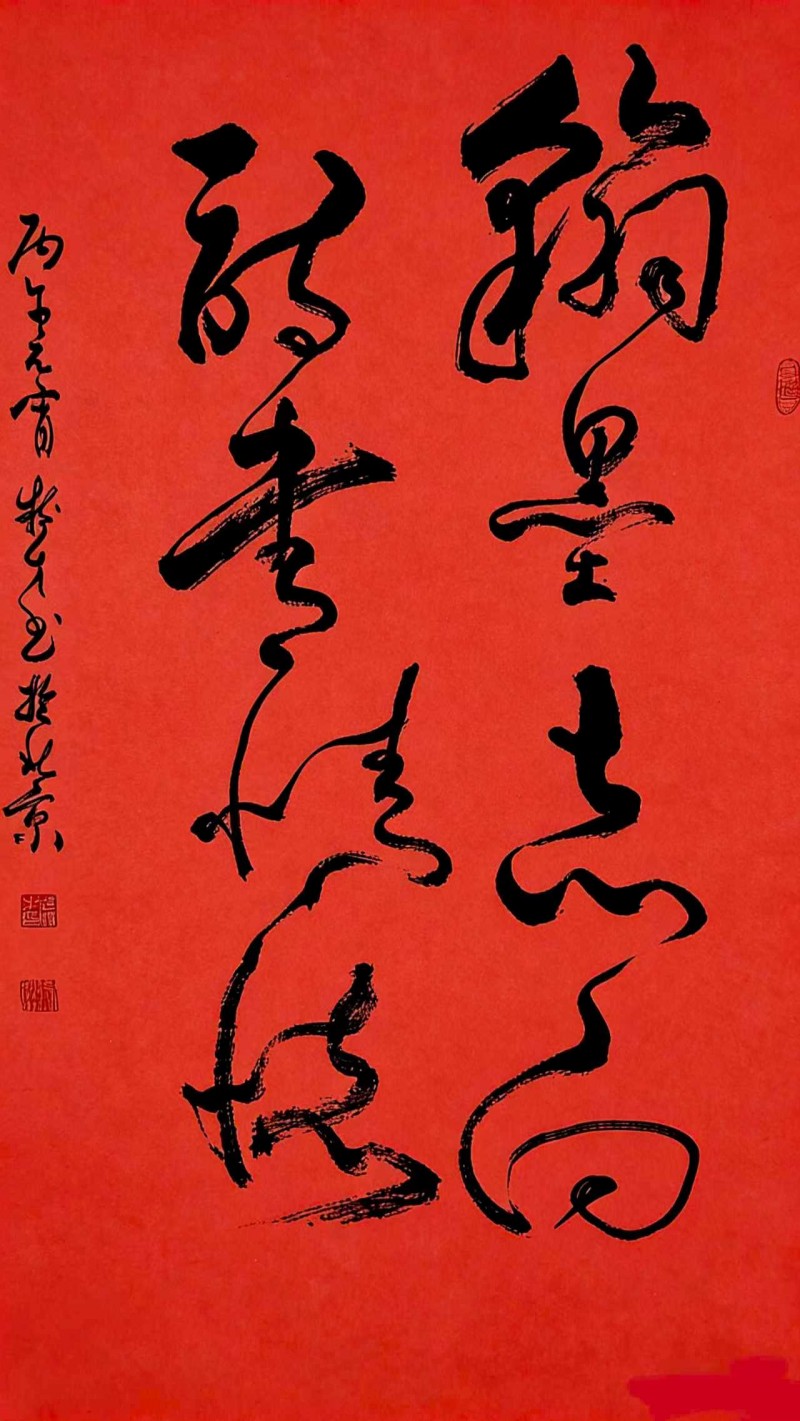 翰墨志向
書情懷
丙午元宵 於北京